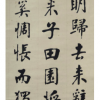 明歸去來辭
來兮田園將
奚惆悵而獨